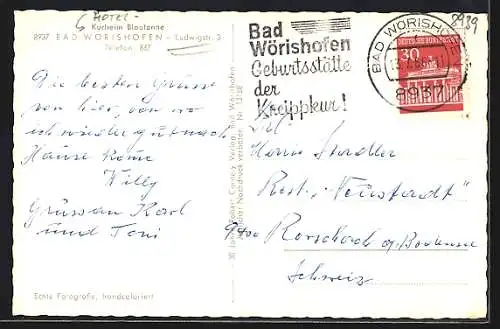 HOTEL
Kurheim Blautanne
8937 BAD WÖRISHOFEN - Ludwigstr. 3
Telefon: 667
Die besten Grüsse
von hier, von wo
ich wieder gut nach
Hause komme
Willy
Grüsse an Karl
und Toni
Echte Fotografie, handcoloriert
Bad
Wörishofen
Geburtsstätte
der
Kneippkur!
BAD WÖRISHOFEN
8937
DEUTSCHE BUNDESPOST
30
8939
Herrn Stadler
Rest. "Neustadt"
9400 Rorschach a/Bodensee
Schweiz